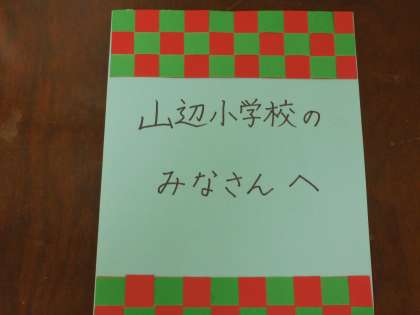 山辺小学校の
みなさんへ